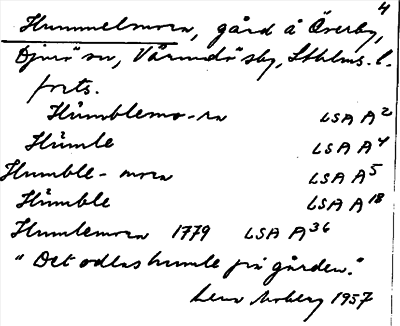 4
Hummelmora, gård å Överby,
Djurö sn, Värmdö sky, Sthlms. l.
forts.
Humblemo-ra LSA A2
Humle LSA A4
Humble-mora LSA A5
Humble LSA A18
Humlemora 1779 LSA A36
"Det odlas humle på gården."
Lena Moberg 1957